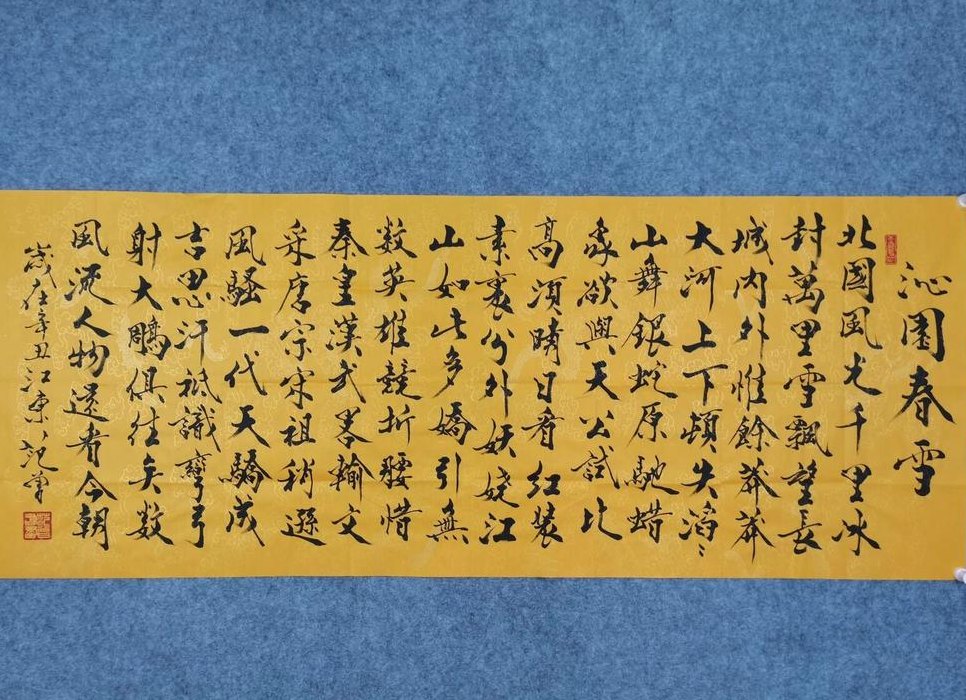 沁園春雪
北國風光千里冰
封萬里雪飄望長
城内外惟餘莽莽
大河上下頓失滔〻
山舞銀蛇原馳蜡
象欲與天公試比
高須晴日看紅裝
素裹分外妖嬈江
山如此多嬌引無
数英雄競折腰惜
秦皇漢武畧輸文
采唐宗宋祖稍遜
風騷一代天驕成
吉思汗祇識彎弓
射大鵰俱往矣数
風流人物還看今朝
歲在辛丑江東范軍